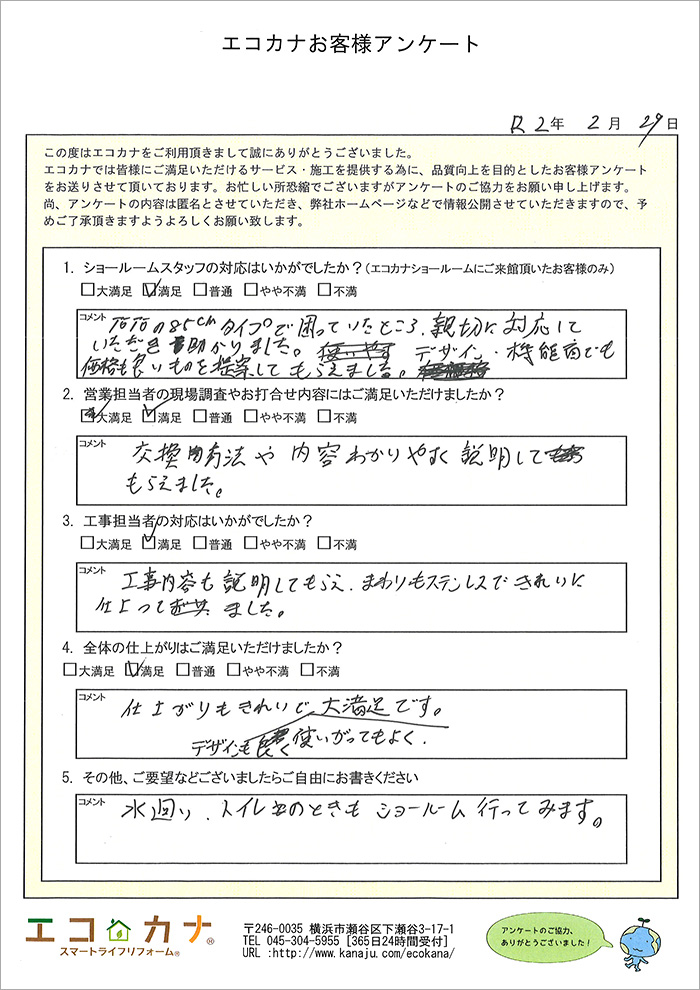 エコカナお客様アンケート
R2年 2月 29日
この度はエコカナをご利用頂きまして誠にありがとうございました。
エコカナでは皆様にご満足いただけるサービス・施工を提供する為に、品質向上を目的としたお客様アンケート
をお送りさせて頂いております。お忙しい所恐縮でございますがアンケートのご協力をお願い申し上げます。
尚、アンケートの内容は匿名とさせていただき、弊社ホームページなどで情報公開させていただきますので、予
めご了承頂きますようよろしくお願い致します。
1. ショールームスタッフの対応はいかがでしたか？(エコカナショールームにご来館頂いたお客様のみ)
□大満足 ☑満足 □普通 □やや不満 □不満
コメント
TOTOの85cmタイプで困っていたところ、親切に対応して
いただき助かりました。デザイン・機能面でも
価格も良いものを提案してもらえました。
2. 営業担当者の現場調査やお打合せ内容にはご満足いただけましたか？
□大満足 ☑満足 □普通 □やや不満 □不満
コメント
交換方法や内容わかりやすく説明して
もらえました。
3. 工事担当者の対応はいかがでしたか？
□大満足 ☑満足 □普通 □やや不満 □不満
コメント
工事内容も説明してもらえ、まわりもステンレスできれいに
仕上って ました。
4. 全体の仕上がりはご満足いただけましたか？
□大満足 ☑満足 □普通 □やや不満 □不満
コメント
仕上がりもきれいで大満足です。
デザインも良く使いがってもよく.
5. その他、ご要望などございましたらご自由にお書きください
コメント
水回り、トイレ のときも ショールーム行ってみます。
エコカナ®
スマートライフリフォーム®
〒246-0035 横浜市瀬谷区下瀬谷3-17-1
TEL 045-304-5955 [365日24時間受付]
URL :http://www.kanaju.com/ecokana/
アンケートのご協力、
ありがとうございました！